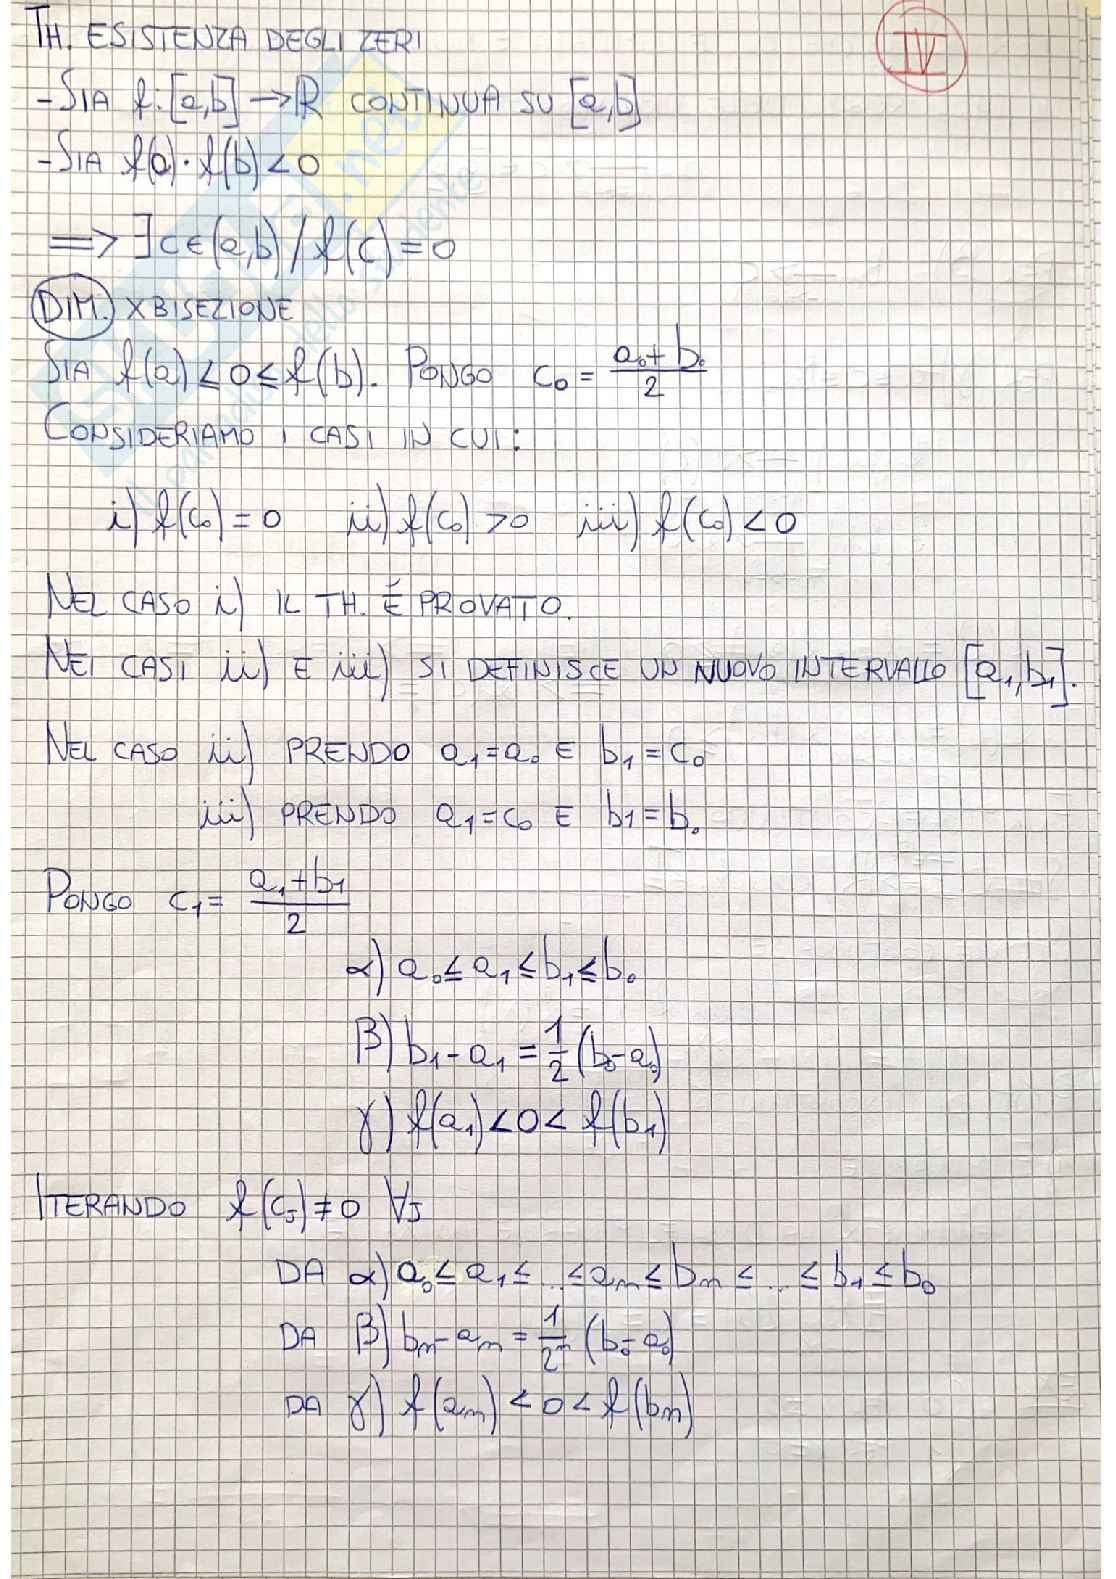 TH. ESISTENZA DEGLI ZERI
IV
- SIA f: [a,b] → ℝ CONTINUA SU [a,b]
- SIA f(a)·f(b)<0
=> ∃ c ∈ (a,b) / f(c) = 0
DIM. X BISEZIONE
SIA f(a) < 0 ≤ f(b). PONGO c₀ = (a₀ + b₀)/2
CONSIDERIAMO I CASI IN CUI:
i) f(c₀) = 0 ii) f(c₀) > 0 iii) f(c₀) < 0
NEL CASO i) IL TH. É PROVATO.
NEI CASI ii) E iii) SI DEFINISCE UN NUOVO INTERVALLO [a₁,b₁].
NEL CASO ii) PRENDO a₁=a₀ E b₁=c₀
iii) PRENDO a₁=c₀ E b₁=b₀
PONGO c₁ = (a₁+b₁)/2
α) a₀ ≤ a₁ ≤ b₁ ≤ b₀
β) b₁ - a₁ = 1/2 (b₀-a₀)
γ) f(a₁) < 0 < f(b₁)
ITERANDO f(cⱼ) ≠ 0 ∀J
DA α) a₀ ≤ a₁ ≤ ... ≤ aₙ ≤ bₙ ≤ ... ≤ b₁ ≤ b₀
DA β) bₙ - aₙ = 1/2ⁿ (b₀-a₀)
DA γ) f(aₙ) < 0 < f(bₙ)